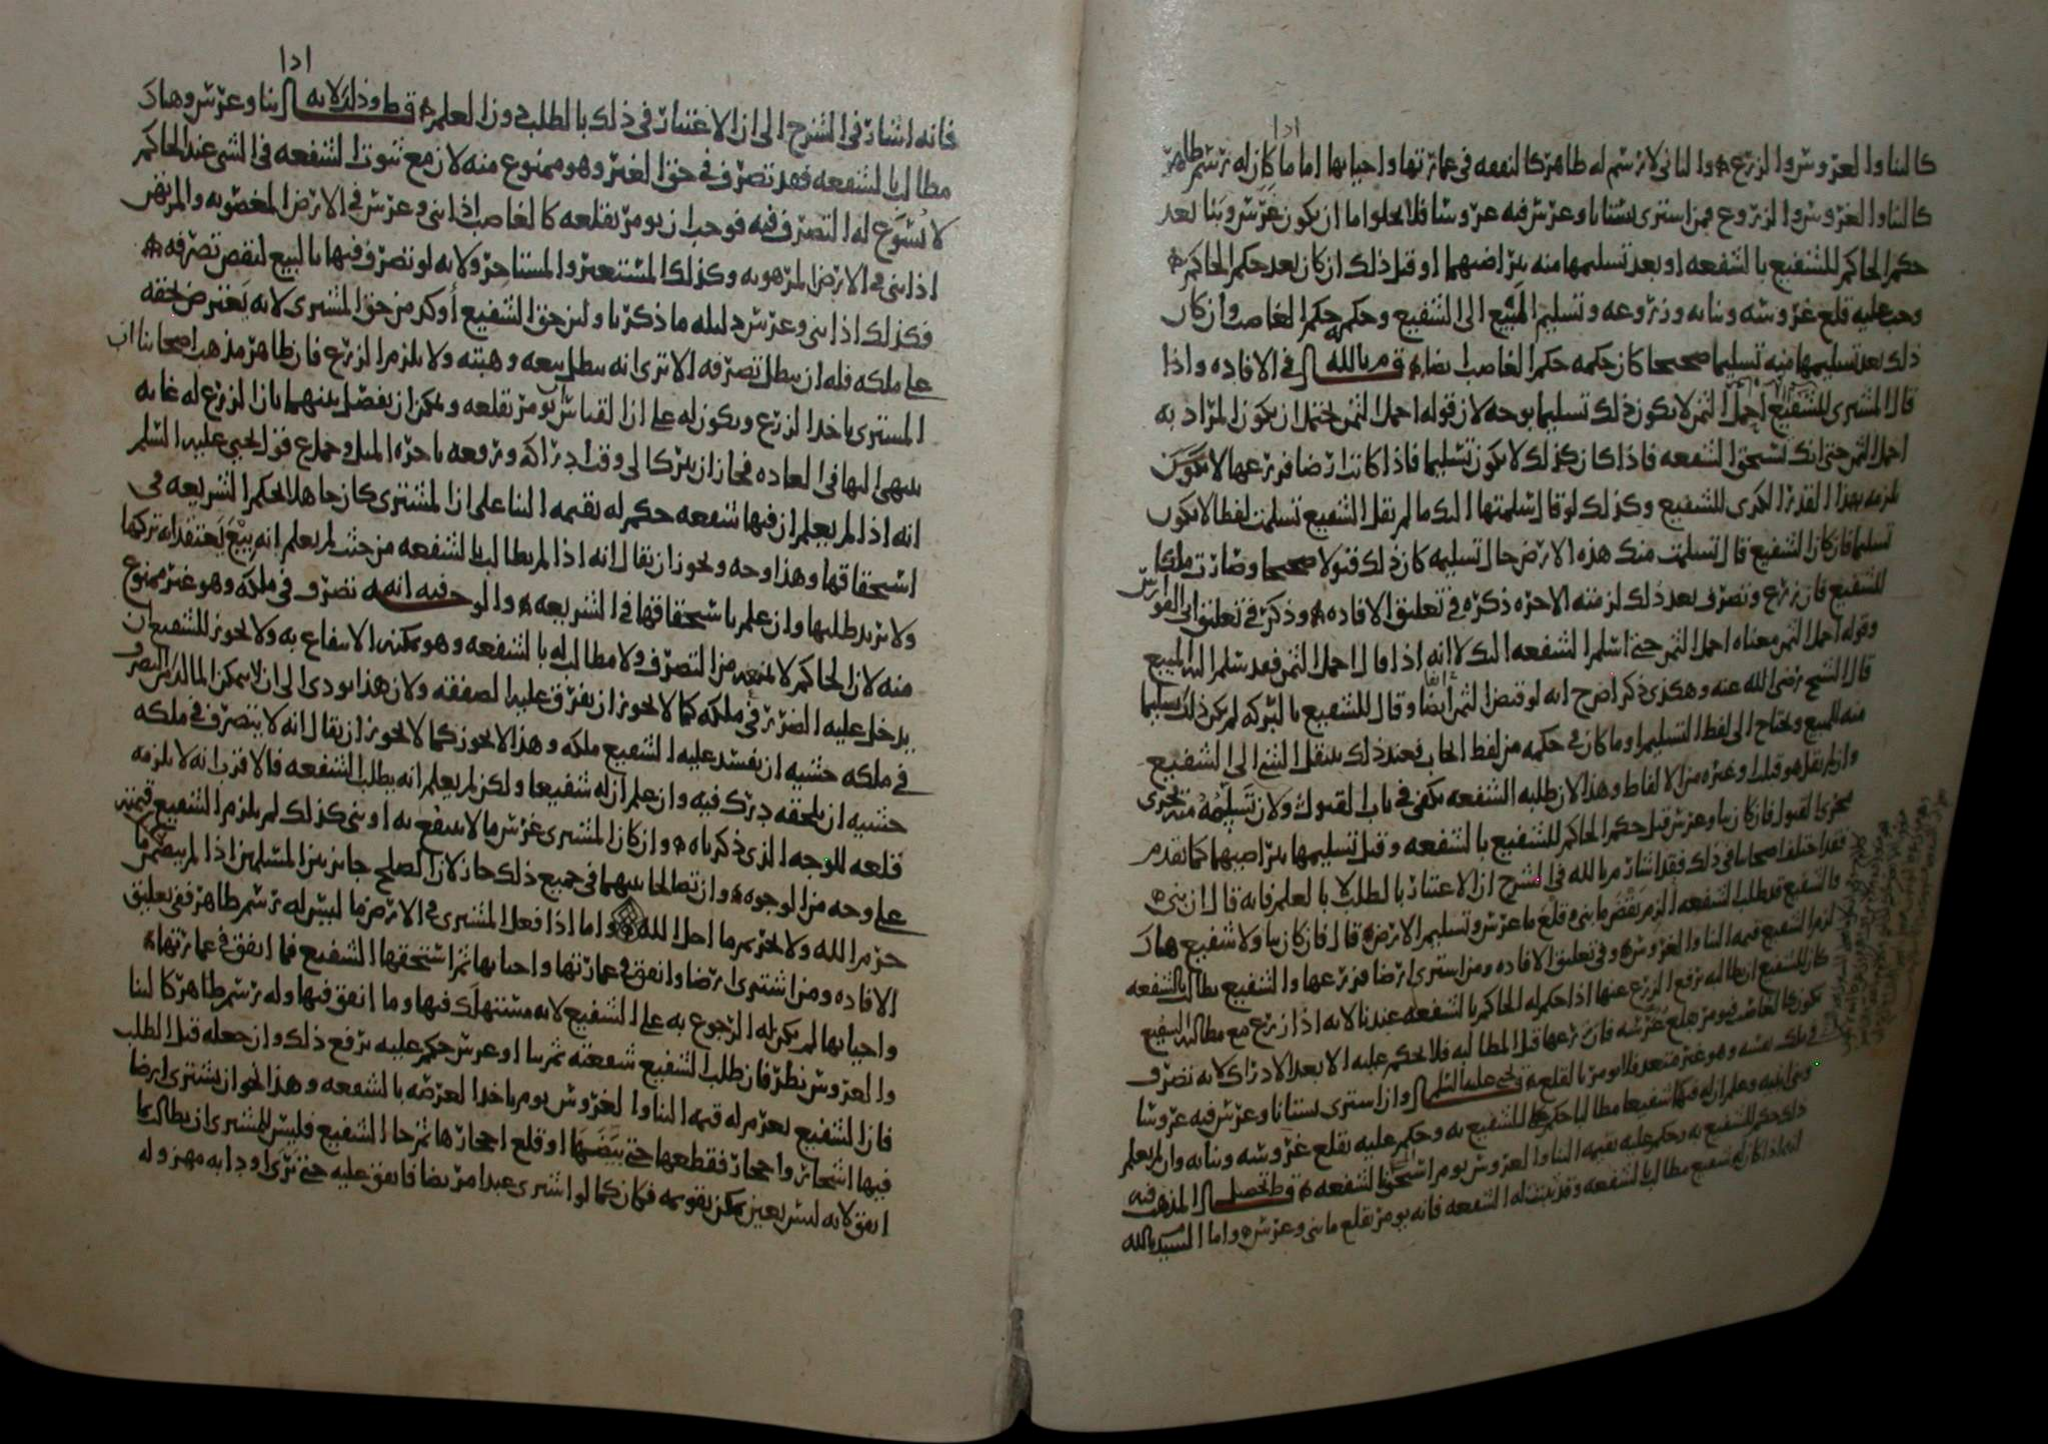 كالبنا والغروس والزرع والثاني لا رسم له ظاهر كالنفقه في عمارتها واحيائها اما ما كان له رسم ظاهر
كالبنا والغروس والزروع فمن اشترى بستانا وغرس فيه غروسا فلا يخلوا اما ان يكون غرس وبنا بعد
حكم الحاكم للشفيع بالشفعه او بعد تسليمها منه بتراضيهما او قبل ذلك ان كان بعد حكم الحاكم
وجب عليه قلع غروسه وبنائه وزروعه وتسليم المبيع الى الشفيع وحكمه حكم الغاصب وان كان
ذلك بعد تسليمها منه تسليما صحيحا كان حكمه حكم الغاصب ايضا قال م بالله في الافاده واذا
قال المشتري للشفيع احمل الثمن لا يكون ذلك تسليما بوجه لان قوله احمل الثمن يحتمل ان يكون المراد به
احمل الثمن حتى انك تستحق الشفعه فاذا كان كذلك لا يكون تسليما فاذا كانت ارضا فزرعها لا يكون
يلزمه بهذا القدر الكرى للشفيع وكذلك لو قال سلمتها اليك ما لم يقل الشفيع تسلمت لفظا لا يكون
تسليما فان كان الشفيع قال تسلمت منك هذه الارض حال تسليمه كان ذلك قبولا صحيحا وصارت ملكا
للشفيع فان زرع وتصرف بعد ذلك لزمته الاجره ذكره في تعليق الافاده وذكر في تعليق ابن ابي الفوارس
وقوله احمل الثمن معناه احمل الثمن حتى اسلم الشفعه اليك لا انه اذا قال احمل الثمن فقد سلم اليه المبيع
قال الشيخ رضي الله عنه وهكذى ذكر اصح انه لو قبض الثمن ايضا وقال للشفيع بالبركه لم يكن ذلك تسليما
منه للمبيع ويحتاج الى لفظ التسليم او ما كان في حكمه من لفظ الحاب فعند ذلك ينتقل الشي الى الشفيع
وان لم يقل هو قبلت او غيره من الالفاظ وهذا لان طلبه الشفعه يكفي في باب القبول ولان تسلمه منه يجري
مجرى القبول فان كان بنا وغرس قبل حكم الحاكم للشفيع بالشفعه وقبل تسليمها بتراضيهما كما تقدم
فقد اختلف اصحابنا في ذلك فقد اشار م بالله في الشرح ان الاعتبار بالطلب لا بالعلم فانه قال ان بنى
والشفيع قد طلب الشفعه الزم نقض ما بنى وقلع ما غرس وتسليم الارض قال فان كان بنا ولا شفيع هناك
لزم الشفيع قيمه البنا والغروس وفي تعليق الافاده ومن اشترى ارضا فزرعها والشفيع يطالب بالشفعه
كان للشفيع ان يطالبه برفع الزرع عنها اذا حكم له الحاكم بالشفعه عندنا لانه اذا زرع مع مطالبه الشفيع
يكون كالغاصب فيومر بقلع غرسه فان زرعها قبل المطالبه فلا يحكم عليه الا بعد الادراك لانه تصرف
في ملك نفسه وهو غير متعد فلا يومر بالقلع قال يحيى عليه السلم وان اشترى بستانا وغرس فيه غروسا
وبنى ابنيه وعلم ان له فيها شفيعا مطالبا حكم للشفيع به وحكم عليه بقلع غروسه وبنائه وان لم يعلم
ذلك حكم للشفيع به وحكم عليه بقيمه البنا والغروس يوم استحق الشفعه قال ط تحصيل المذهب فيه
انه اذا كان له شفيع مطالب بالشفعه وقد ثبتت له الشفعه فانه يومر بقلع ما بنى وغرس واما السيد م بالله
فانه اشار في الشرح الى ان الاعتبار في ذلك بالطلب دون العلم قال ط وذلك لانه اذا بنا وغرس وهناك
مطالب بالشفعه فقد تصرف في حق الغير وهو ممنوع منه لان مع ثبوت الشفعه في الشي عند الحاكم
لا يسوغ له التصرف فيه فوجب ان يومر بقلعه كالغاصب اذا بنى وغرس في الارض المغصوبه والمرتهن
اذا بنى في الارض المرهونه وكذلك المستعير والمستاجر ولانه لو تصرف فيها بالبيع لنقض تصرفه
فكذلك اذا بنى وغرس دليله ما ذكرنا ولئن حق الشفيع أوكد من حق المشتري لانه يعترض لحقه
على ملكه فله ان يبطل تصرفه الا ترى انه يبطل بيعه وهبته ولا يلزم الزرع فان ظاهر مذهب اصحابنا ان
المشتري ياخذ الزرع ويكون له على ان القياس ان يومر بقلعه ويمكن ان يفصل بينهما بان الزرع له غايه
ينتهي اليها في العاده فجاز ان يترك الى وقت ادراكه ورفعه باجره المثل وحمل ع قول يحيى عليه السلم
انه اذا لم يعلم ان فيها شفعه حكم له بقيمه البنا على ان المشتري كان جاهلا لحكم الشريعه في
استحقاقها وهذا وجه ويجوز ان يقال انه اذا لم يطالب بالشفعه من حيث لم يعلم انه بيع يعتقد انه تركها
ولا يريد طلبها وان علم باستحقاقها في الشريعه والوجه فيه انه تصرف في ملكه وهو غير ممنوع
منه لان الحاكم لا يمنعه من التصرف ولا مطالب له بالشفعه وهو يمكنه الانتفاع به ولا يجوز للشفيع ان
يدخل عليه الضرر في ملكه كما لا يجوز ان يفرق عليه الصفقه ولان هذا يودي الى ان لا يمكن المالك من التصرف
في ملكه خشيه ان يفسد عليه الشفيع ملكه وهذا لا يجوز كما لا يجوز ان يقال انه لا يتصرف في ملكه
خشيه ان يلحقه درك فيه وان علم ان له شفيعا ولكن لم يعلم انه يطلب الشفعه فالاقرب انه لا يلزمه
قلعه للوجه الذي ذكرناه وان كان المشتري غرس ما لا ينتفع به او بنى كذلك لم يلزم الشفيع قيمته
على وجه من الوجوه وان تصالحا بينهما في جميع ذلك جاز لان الصلح جايز بين المسلمين اذا لم يتضمن ما
حرم الله ولا تحريم ما احل الله واما اذا فعل المشتري في الارض ما ليس له رسم ظاهر ففي تعليق
الافاده ومن اشترى ارضا وانفق في عمارتها واحيائها ثم استحقها الشفيع فما انفق في عمارتها
واحيائها لم يكن له الرجوع به على الشفيع لانه مستهلك فيها وما انفق فيها وله رسم ظاهر كالبنا
والغروس نظر فان طلب الشفيع شفعته ثم بنا او غرس حكم عليه برفع ذلك وان جعله قبل الطلب
فان الشفيع يغرم له قيمه البنا والغروس يوم ياخذ العرصه بالشفعه وهذا نحو ان يشتري ارضا
فيها اشجار واحجار فقطعها حتى بيضها او قلع احجارها ثم جا الشفيع فليس للمشتري ان يطالب بما
انفق لانه ليس بعين يمكن تقويمه فكان كما لو اشترى عبدا مريضا فانفق عليه حتى برى او دابه مهزوله